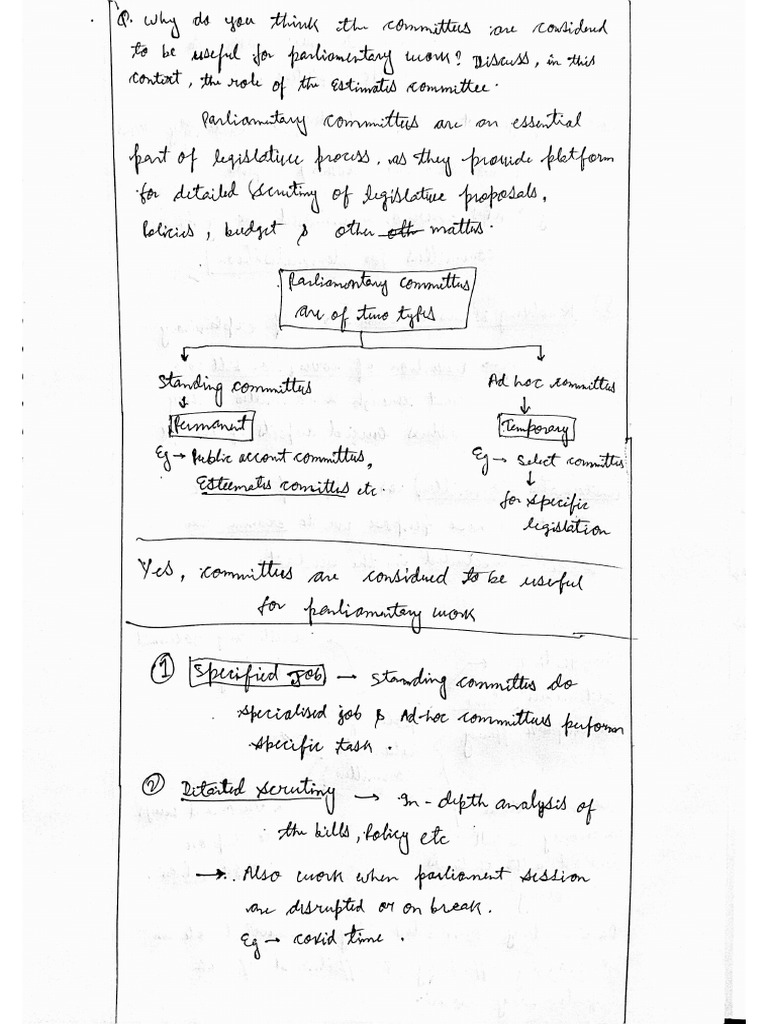 Q. Why do you think the committees are considered
to be useful for parliamentary work? Discuss, in this
context, the role of the Estimates committee.
Parliamentary committees are an essential
part of legislative process, as they provide platform
for detailed scrutiny of legislative proposals,
Policies, budget & other oth matters.
Parliamentary committees
are of two types
Standing committees
Ad hoc committees
Permanent
Temporary
Eg → Public account committees,
Esteemates comittes etc.
Eg → Select committes
for specific
legislation
Yes, committees are considered to be useful
for parliamentary work
① Specified Job → Standing committes do
specialised job & Ad-hoc committees perform
specific task.
② Detailed scrutiny → In-depth analysis of
the bills, Policy etc
→ Also work when parliament session
are disrupted or on break.
Eg → covid time.